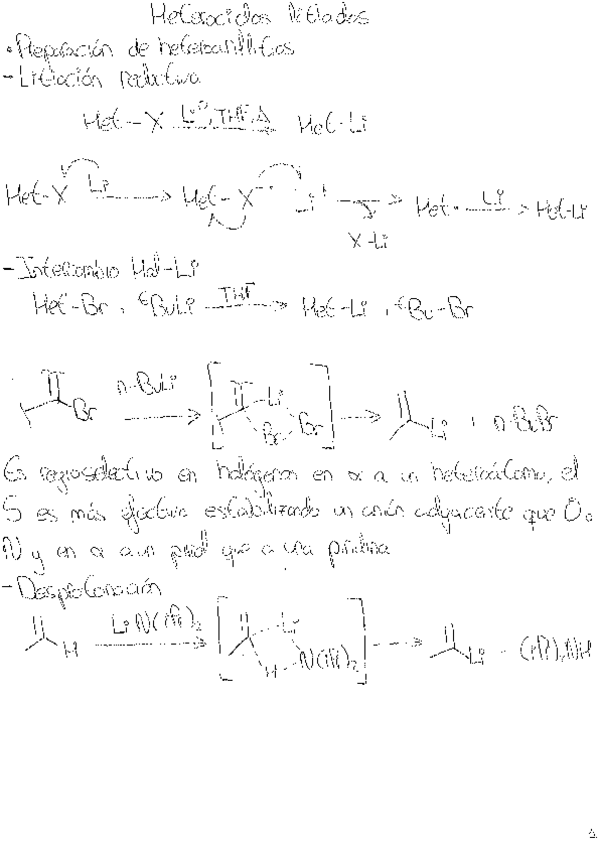 Heterociclos litiados
• Preparación de heteroarillitios
- Litiación reductiva
Het-X Li⁰, THF, Δ Het-Li
Het-X Li Het-X Li Het· Li Het-Li
X-Li
- Intercambio Hal-Li
Het-Br + ᵗBuLi THF Het-Li + ᵗBu-Br
Br n-BuLi Li Br Li + n-BuBr
Es regioselectivo en halógenos en α a un heteroátomo, el
S es más efectivo estabilizando un anión adyacente que O o
N y en α a un pirrol que a una piridina
- Desprotonación
H LiN(iPr)₂ Li H N(iPr)₂ Li + (iPr)₂NH